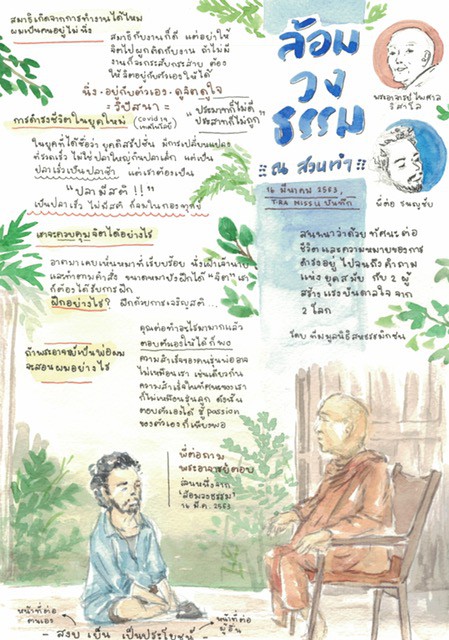 สมาธิเกิดจากการทำงานได้ไหม
ผมเป็นคนอยู่ไม่นิ่ง
สมาธิกับงานก็ดี แต่อย่าใช้
จิตไปผูกติดกับงาน ถ้าไม่มี
งานก็จะกระสับกระส่าย ต้อง
ให้จิตอยู่กับตัวเองให้ได้
นิ่ง - อยู่กับตัวเอง - ดูจิตดูใจ
= วิปัสนา =
"ประมาทก็ไม่ดี
ประสาทก็ไม่ถูก"
การดำรงชีวิตในยุคใหม่
(Covid 19
เทคโนโลยี)
ในยุคที่ได้ชื่อว่า ยุคดิสรัปชั่น มีการเปลี่ยนแปลง
ที่รวดเร็ว ไม่ใช่ปลาใหญ่กินปลาเล็ก แต่เป็น
ปลาเร็วกินปลาช้า แต่เราต้องเป็น
"ปลามีสติ !!"
เป็นปลาเร็ว ไม่มีสติ ก็จมในกองทุกข์
เราจะควบคุมจิตได้อย่างไร
อาตมาเคยเห็นหมาที่เรียบร้อย นั่งเฝ้าเจ้านาย
และทำตามคำสั่ง ขนาดหมายังฝึกได้ "จิต" เรา
ก็ต้องได้รับการฝึก
ฝึกอย่างไร? ฝึกด้วยการเจริญสติ ...
ถ้าพระอาจารย์เป็นพ่อผม
จะสอนผมอย่างไร
คุณต่อทำอะไรมามากแล้ว
ตอบตัวเองให้ได้ ก็พอ
ความสำเร็จของคนรุ่นพ่ออาจ
ไม่เหมือนเรา เช่นเดียวกัน
ความสำเร็จในทัศนะของเรา
ก็ไม่เหมือนรุ่นลูก ดังนั้น
ตอบตัวเองได้ รู้ passion
ของตัวเอง ก็เพียงพอ
พี่ต่อถาม
พระอาจารย์ตอบ
ส่วนหนึ่งจาก
"ล้อมวงธรรม"
16 มี.ค. 2563
ล้อม
วง
ธรรม
ณ สวนทำ
16 มีนาคม 2563,
บันทึก
พระอาจารย์ ไพศาล
วิสาโล
พี่ต่อ ธนญชัย
สนทนาว่าด้วย ทัศนะต่อ
ชีวิต และความหมายของการ
ดำรงอยู่ ไปจนถึงคำถาม
แห่ง ยุคสมัย กับ 2 ผู้
สร้างแรงบันดาลใจ จาก
2 โลก
โดย ทีมมูลนิธิสหธรรมิกชน
หน้าที่ต่อ
ตนเอง
หน้าที่ต่อ
ผู้อื่น
- สงบ เย็น เป็นประโยชน์ -